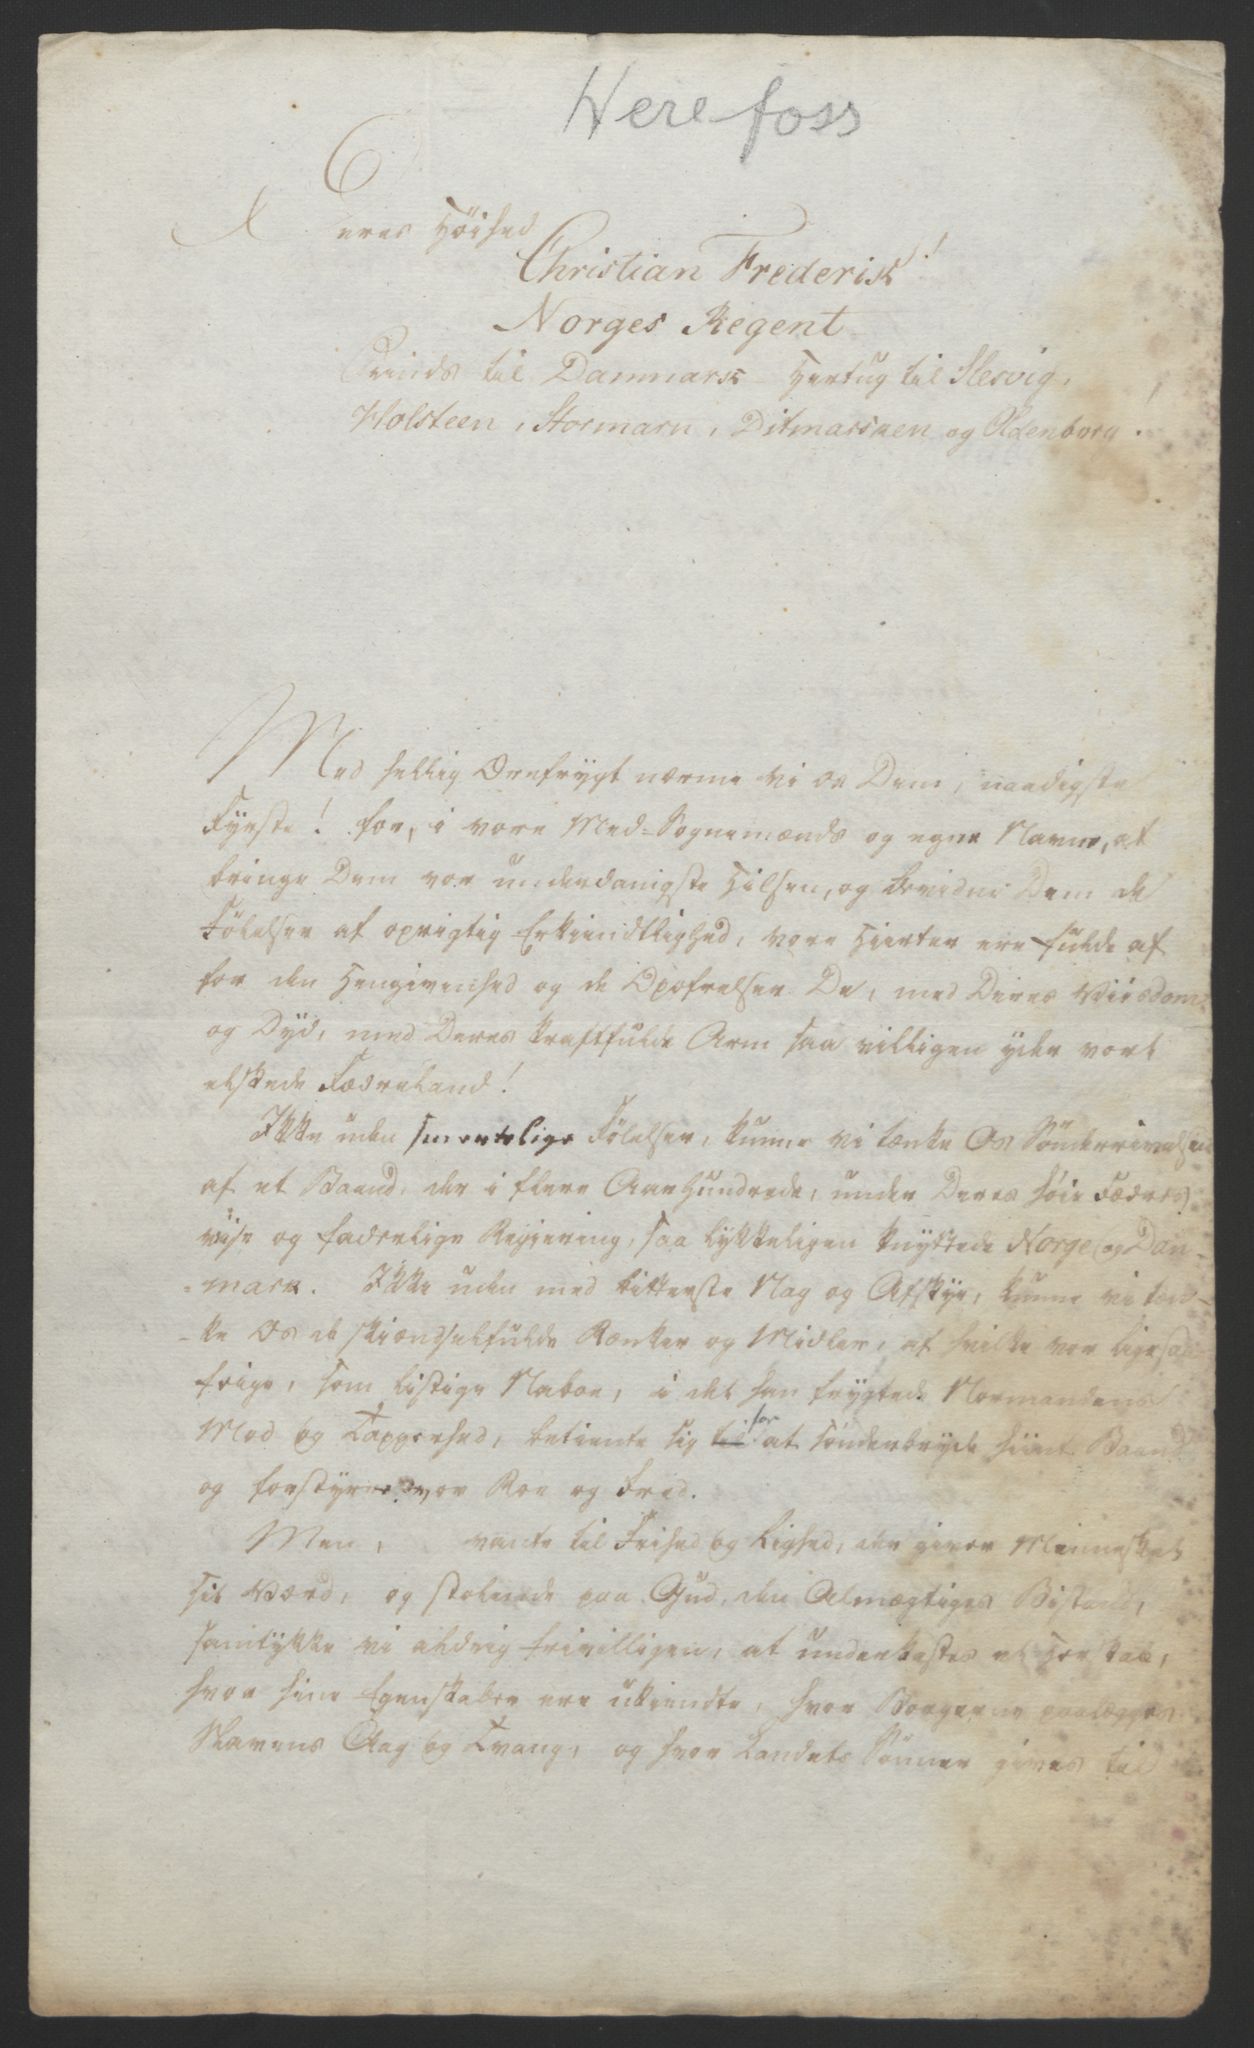 Herefoss
Deres Höihed
Christian Frederik!
Norges Regent
Prinds til Danmark Hertug til Slesvig,
Holsteen, Stormarn, Ditmarsken og Oldenborg!
Med hellig Ærefrygt nærme vi os Dem, naadigste
Fyrste! for, i vore Med-Sognemænds og egne Navne, at
bringe Dem vor underdanigste Hilsen, og bevidne Dem de
Fölelser af oprigtig Erkiendtlighed, vore Hierter ere fulde af
for den Hengivenhed og de Opofrelser De, med Deres Viisdom
og Dyd, med Deres kraftfulde Arm saa villigen yder vort
elskede Fædreland!
Ikke uden smertelige Fölelser, kunne vi tænke Os Sönderrivelsen
af et Baand, der i flere Aarhundrede, under Deres höie Fædres
viise og faderlige Regiering, saa lykkeligen knyttede Norge og Dan-
-mark. Ikke uden med bitterste Nag og Afskye, kunne vi tæn-
-ke Os de skiændselfulde Rænker og Midler, af hvilke vor ligesaa
feige, som listige Naboe, i det han frygtede Normandens
Mod og Tapperhed, betiente sig til for at sönderbryde hiint Baand
og forstyrre vor Roe og Fred.
Men, vante til Frihed og Lighed, der giver Mennesket
sit Værd, og stolende paa Gud, den Almægtiges Bistand,
samtykke vi aldrig frivilligen, at underkastes et Herskab,
hvor hine Egenskaber ere ukiendte, hvor Borgerne paalægges
Slavens Aag og Tvang, og hvor Landets Sönner gives til